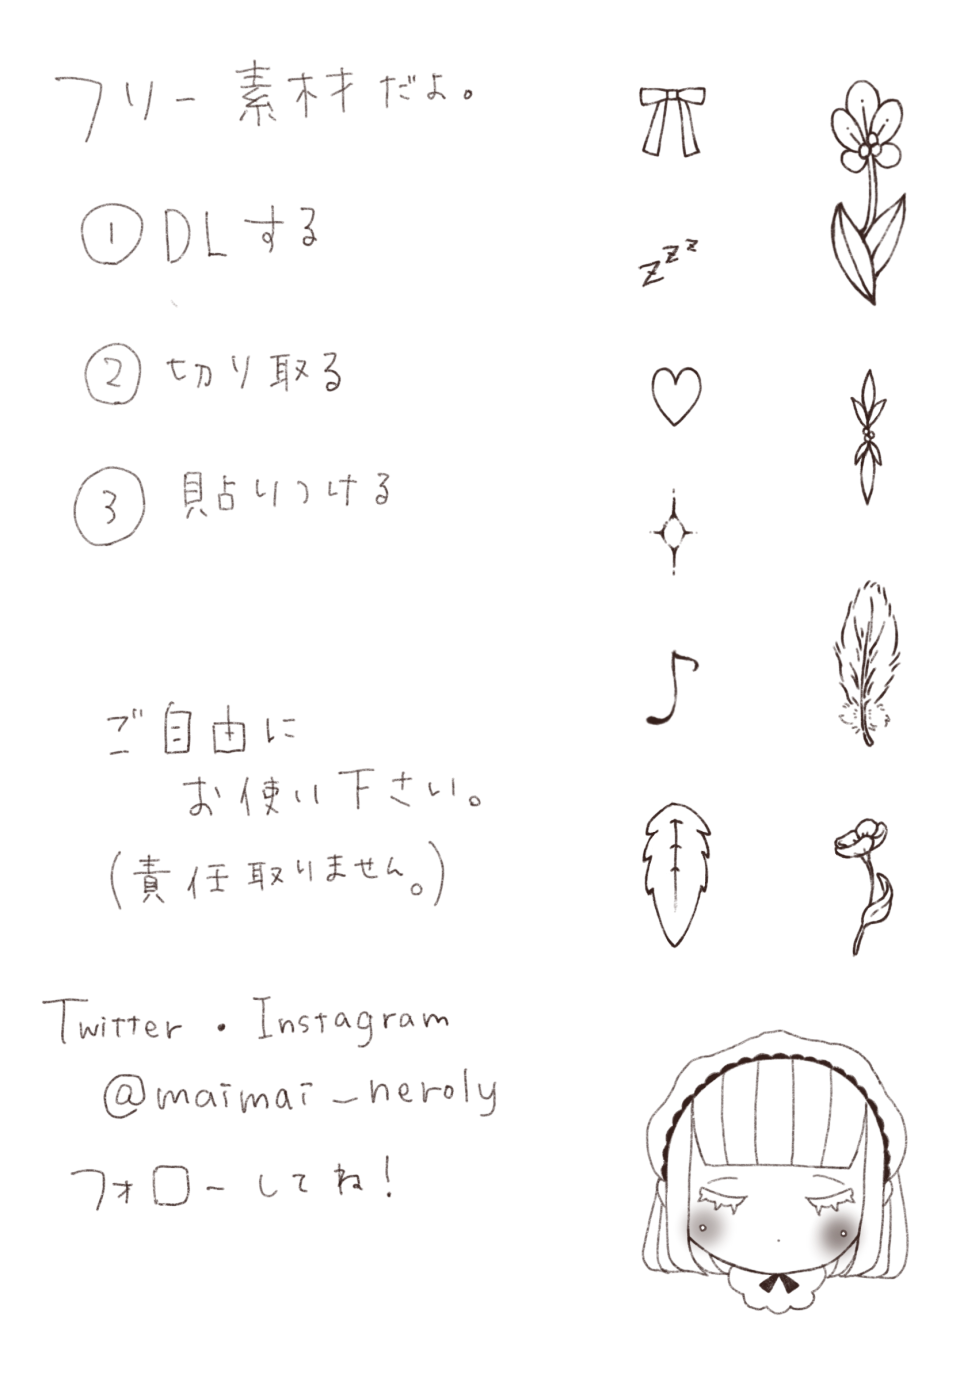 フリー素材だよ。
① DLする
② 切り取る
③ 貼りつける
ご自由に
お使い下さい。
(責任取りません。)
Twitter・Instagram
@maimai_neroly
フォローしてね!
zzz